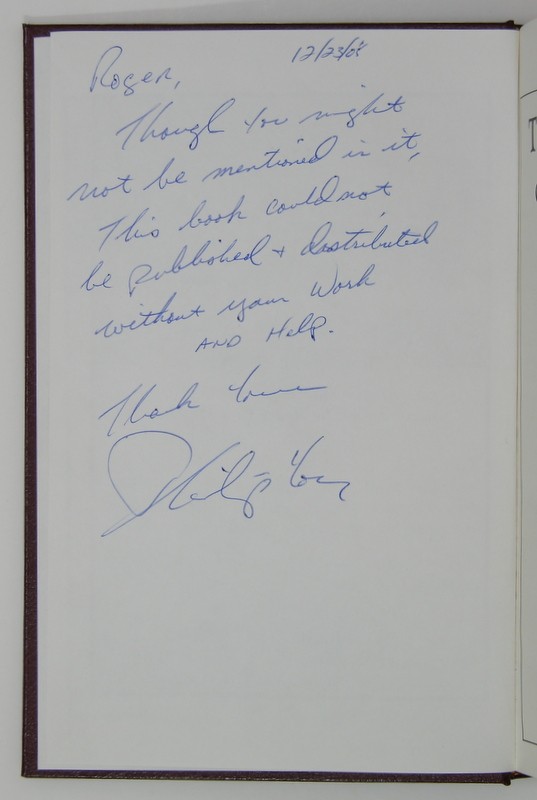 12/23/05
Roger,
Though you might
not be mentioned in it,
This book could not
be published + distributed
without your work
AND Help.
Thank You
Philip
T